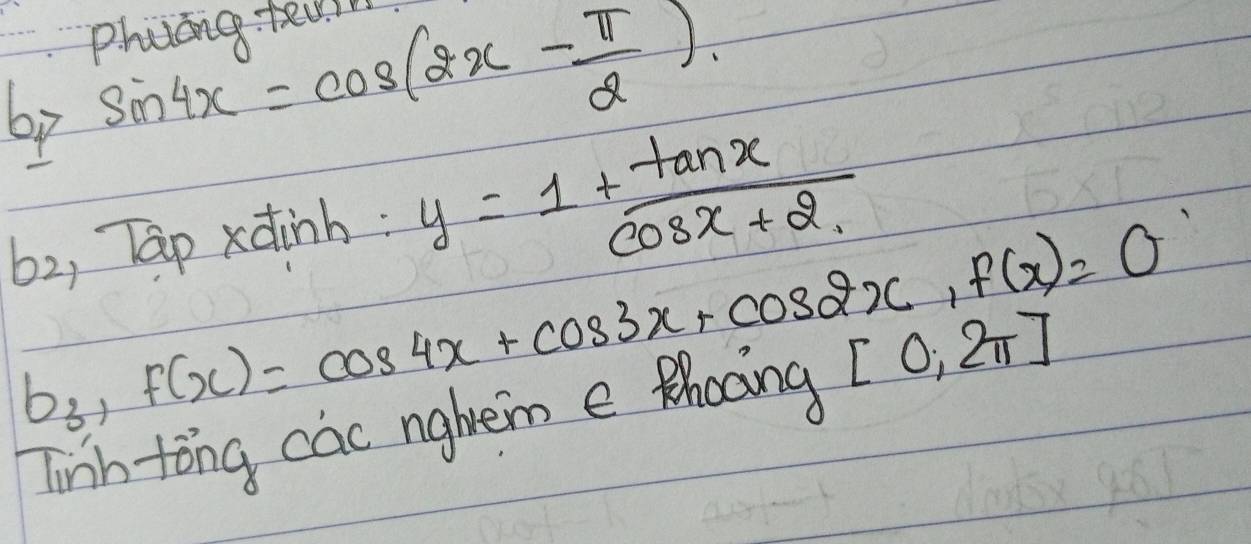 Phương trình
b1) sin4x = cos(2x - π/2).
b2, Tập xđịnh : y = 1 + tanx/cosx + 2.
b3, f(x) = cos4x + cos3x + cos2x, f(x) = 0
Tính tổng các nghiệm ∈ khoảng [0; 2π]